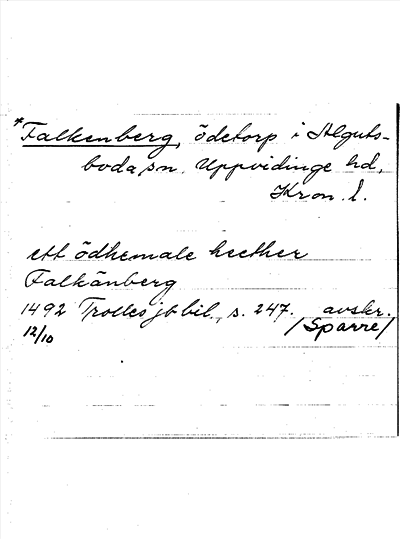 *Falkenberg, ödetorp i Alguts-
boda sn. Uppvidinge hd,
Kron. l.
ett ödhemale heether
Falkänberg
1492 Trolles jb bil., s. 247. avskr.
12/10 /Sparre/